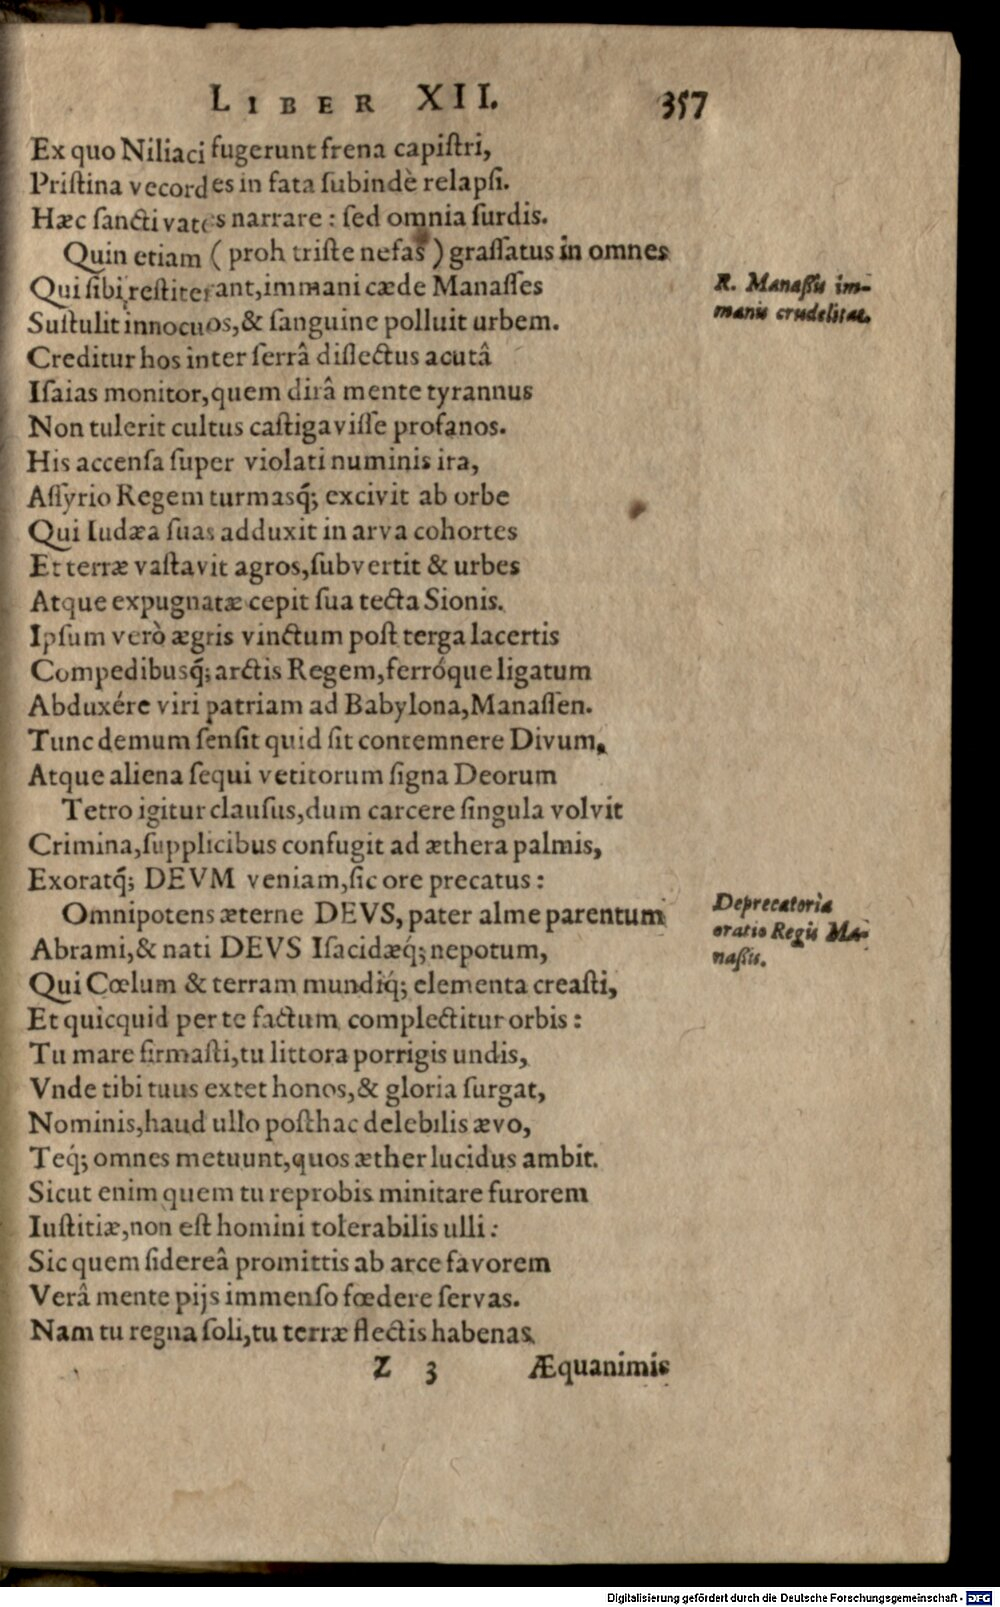 LIBER XII. 357
Ex quo Niliaci fugerunt frena capiſtri,
Priſtina vecordes in fata ſubindè relapſi.
Hæc ſancti vates narrare : ſed omnia ſurdis.
Quin etiam ( proh triſte nefas ) graſſatus in omnes
Qui ſibi reſtiterant, immani cæde Manaſſes
R. Manaſſis im-
manis crudelitas.
Suſtulit innocuos, & ſanguine polluit urbem.
Creditur hos inter ſerrâ diſſectus acutâ
Iſaias monitor, quem dirâ mente tyrannus
Non tulerit cultus caſtigaviſſe profanos.
His accenſa ſuper violati numinis ira,
Aſſyrio Regem turmasq́; excivit ab orbe
Qui Iudæa ſuas adduxit in arva cohortes
Et terræ vaſtavit agros, ſubvertit & urbes
Atque expugnatæ cepit ſua tecta Sionis.
Ipſum verò ægris vinctum poſt terga lacertis
Compedibusq́; arctis Regem, ferróque ligatum
Abduxére viri patriam ad Babylona, Manaſſen.
Tunc demum ſenſit quid ſit contemnere Divum,
Atque aliena ſequi vetitorum ſigna Deorum
Tetro igitur clauſus, dum carcere ſingula volvit
Crimina, ſupplicibus confugit ad æthera palmis,
Exoratq́; DEVM veniam, ſic ore precatus :
Omnipotens æterne DEVS, pater alme parentum
Deprecatoria
oratio Regis Ma-
naſſis.
Abrami, & nati DEVS Iſacidæq́; nepotum,
Qui Cœlum & terram mundiq́; elementa creaſti,
Et quicquid per te factum complectitur orbis :
Tu mare firmaſti, tu littora porrigis undis,
Vnde tibi tuus extet honos, & gloria ſurgat,
Nominis, haud ullo poſthac delebilis ævo,
Teq́; omnes metuunt, quos æther lucidus ambit.
Sicut enim quem tu reprobis minitare furorem
Iuſtitiæ, non eſt homini tolerabilis ulli :
Sic quem ſidereâ promittis ab arce favorem
Verâ mente pijs immenſo fœdere ſervas.
Nam tu regna ſoli, tu terræ flectis habenas
Z 3 Æquanimis
Digitalisierung gefördert durch die Deutsche Forschungsgemeinschaft - DFG